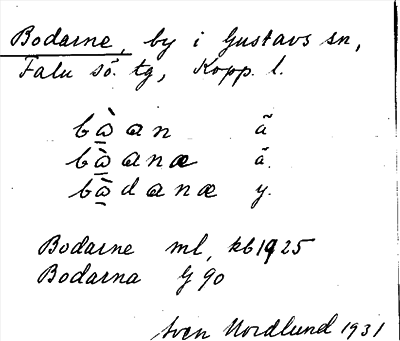 Bodarne, by i Gustavs sn,
Falu sö. tg, Kopp. l.
bà̱an ã
bà̱anæ ã.
bà̱danæ y.
Bodarne ml, kb1925
Bodarna G 90
Sven Nordlund 1931